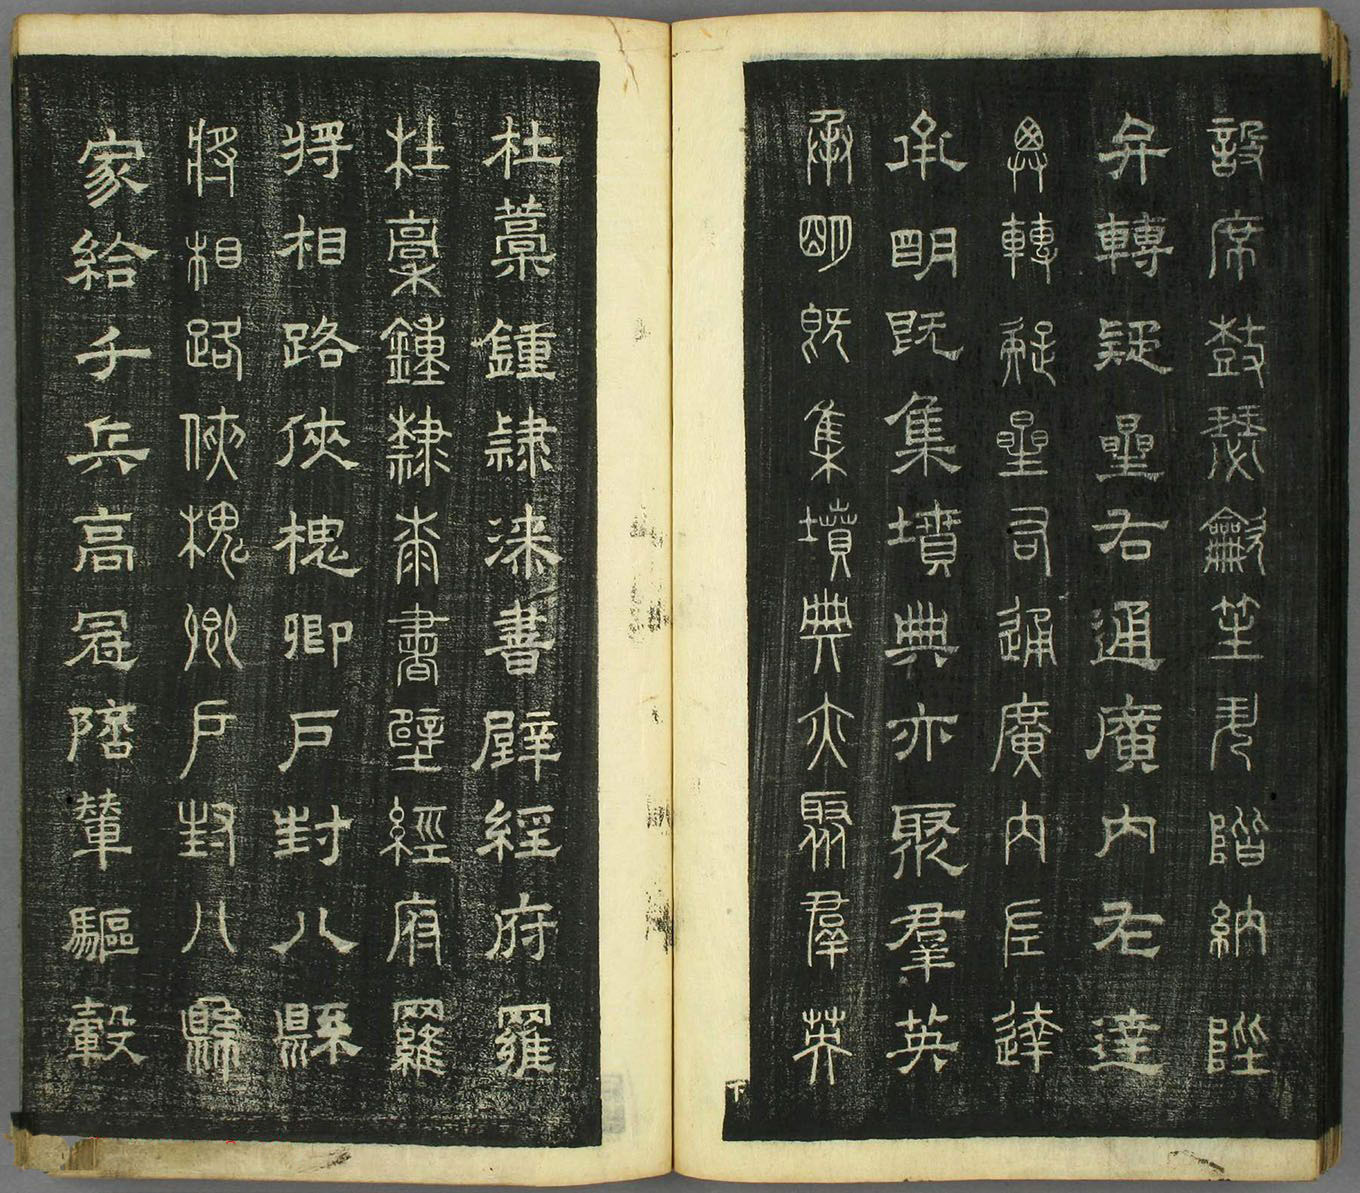 設席鼓瑟龡笙升階納陛
弁轉疑星右通廣內左達
弁轉疑星右通廣內左達
承明既集墳典亦聚羣英
承明既集墳典亦聚羣英
杜藁鍾隸漆書壁經府羅
杜稾鍾隸桼書壁經府羅
將相路俠槐卿戶封八縣
將相路俠槐卿戶封八縣
家給千兵高冠陪輦驅轂
下